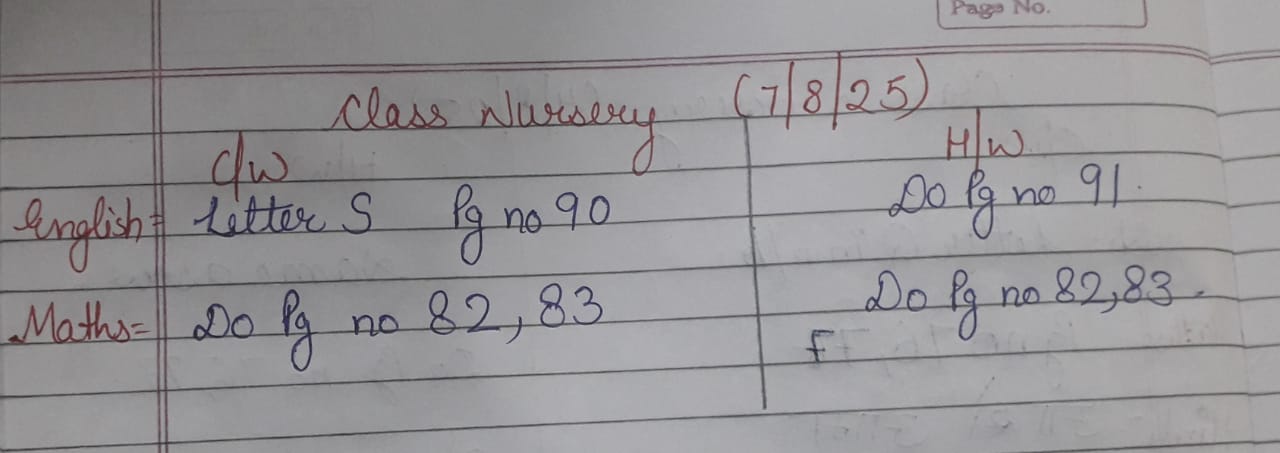 Page No.
Class Nursery (7/8/25)
C/W H/W
English= Letter S Pg no 90 Do Pg no 91.
Maths= Do Pg no 82, 83 Do Pg no 82,83.
F